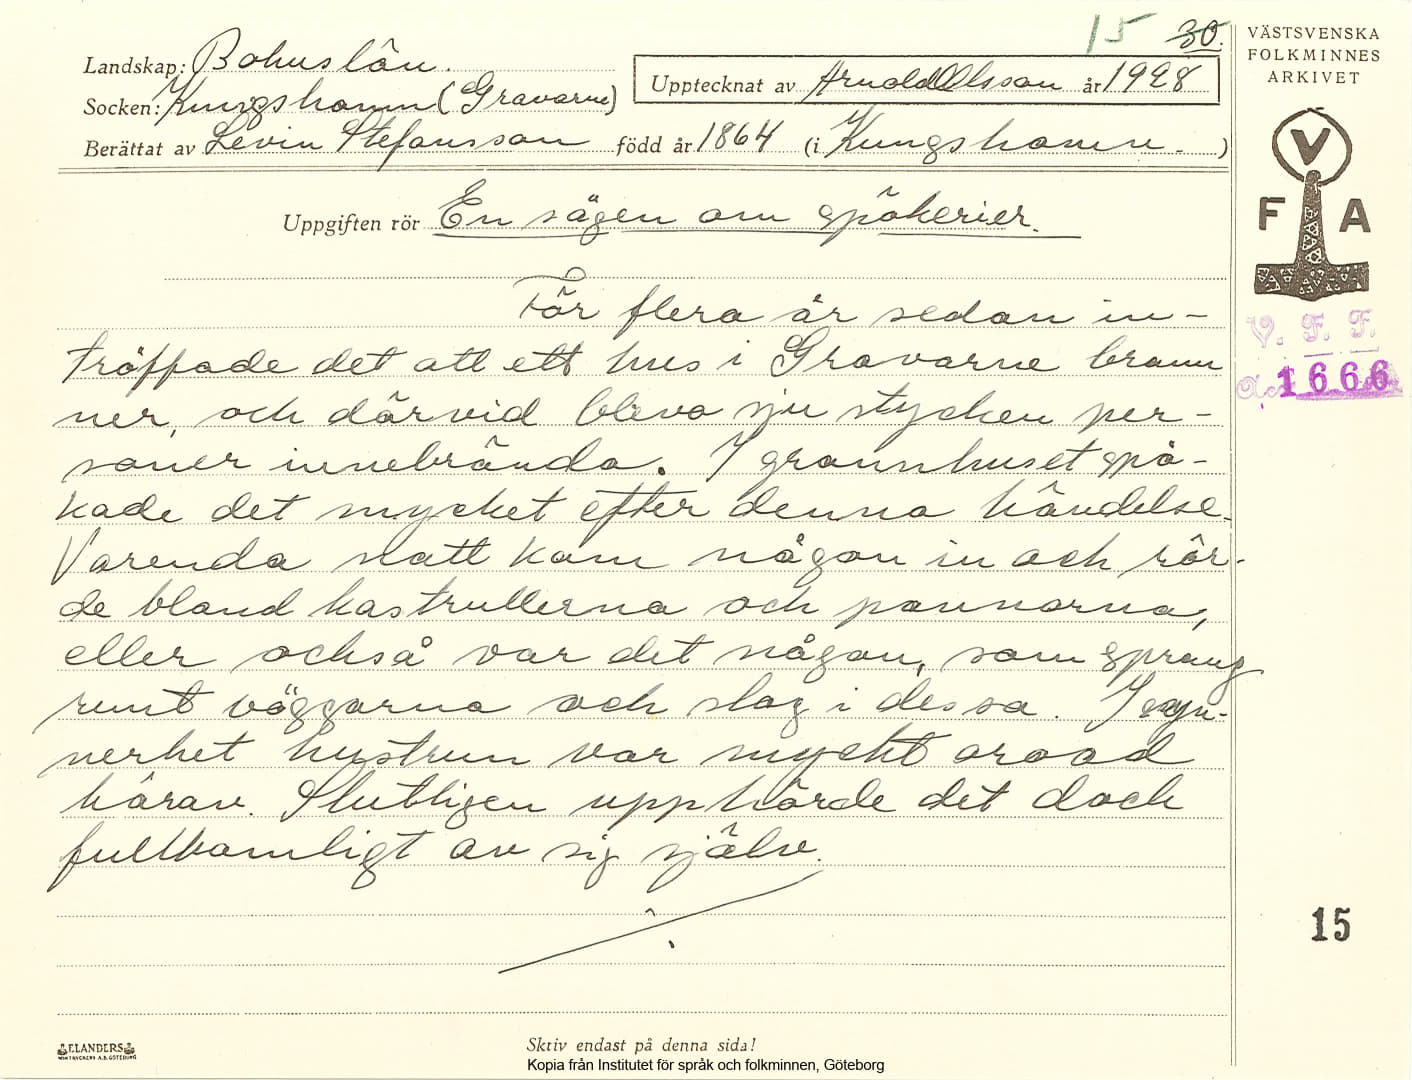 15 30.
Landskap: Bohuslän.
Socken: Kungshamn (Gravarne)
Upptecknat av Arnold Olsson år 1928
Berättat av Levin Stefansson född år 1864 (i Kungshamn.)
Uppgiften rör En sägen om spökerier.
För flera år sedan in-
träffade det att ett hus i Gravarne brann
ner, och därvid blevo sju stycken per-
soner innebrända. I grannhuset spö-
kade det mycket efter denna händelse.
Varenda natt kom någon in och rör-
de bland kastrullerna och pannorna,
eller också var det någon, som sprang
runt väggarna och slog i dessa. I syn-
nerhet hustrun var mycket oroad
härav. Slutligen upphörde det dock
fullkomligt av sig själv.
VÄSTSVENSKA
FOLKMINNES
ARKIVET
V
F A
V. F. F.
1666
15
ELANDERS
Skriv endast på denna sida!
Kopia från Institutet för språk och folkminnen, Göteborg